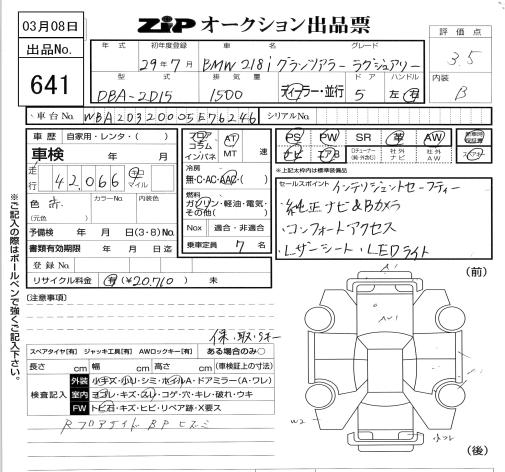 03月08日
出品No.
641
ZIP オークション出品票
評価点
3.5
内装
B
年式 初年度登録 車名 グレード
29年7月 BMW 218i グランツアラー ラグジュアリー
型式 排気量 ドア ハンドル
DBA-2D15 1500 ディーラー・並行 5 左・右
車台No. WBA2D320005E76246 シリアルNo.
車歴 自家用・レンタ・( )
車検 年 月
走行 42,066 キロ マイル
色 赤 カラーNo. 内装色
(元色 )
予備検 年 月 日(3・8)No.
書類有効期限 年 月 日迄
登録No.
リサイクル料金 有(¥20,710 ) 未
フロア コラム インパネ
AT MT 速
冷房
無・C・AC・AAC・( )
燃料
ガソリン・軽油・電気・その他( )
Nox 適合・非適合
乗車定員 7 名
PS PW SR 革 AW
ナビ エアB 社外ナビ 社外AW
*上記太枠内は標準装備品
セールスポイント インテリジェントセーフティー
・純正ナビ&Bカメラ
・コンフォートアクセス
・レザーシート・LEDライト
※ご記入の際はボールペンで強くご記入下さい。
[注意事項]
保、取、Sキー
スペアタイヤ[有] ジャッキ工具[有] AWロックキー[有] ある場合のみ○
長さ cm 幅 cm 高さ cm (車検証上の寸法)
検査記入
外装 小キズ・小リ・シミ・ホイルA・ドアミラー(A・ワレ)
室内 ヨゴレ・キズ・スリ・コゲ・穴・キレ・破れ・ウキ
FW トビ石・キズ・ヒビ・リペア跡・X要ス
RフロアサイドBPヒズミ
(前)
A1
AU1
W2
(後)